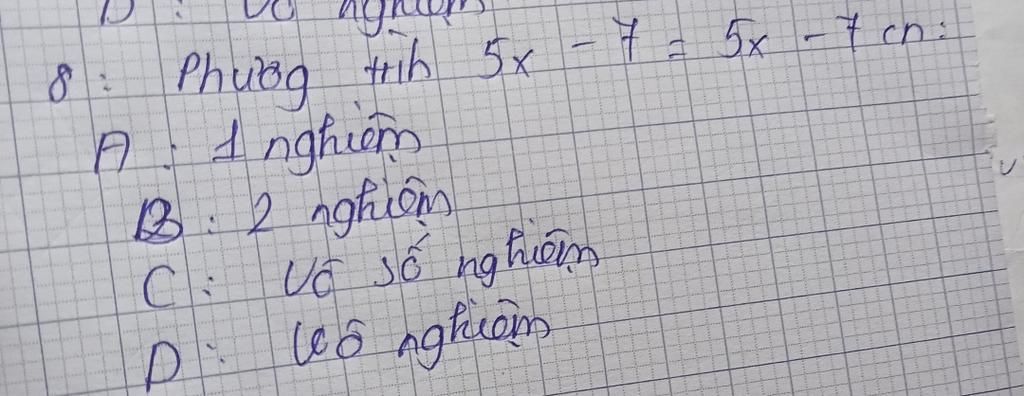 D : Vô nghiệm
8 : Phương trình 5x - 7 = 5x - 7 cn :
A : 1 nghiệm
B : 2 nghiệm
C : Vô số nghiệm
D : Vô nghiệm